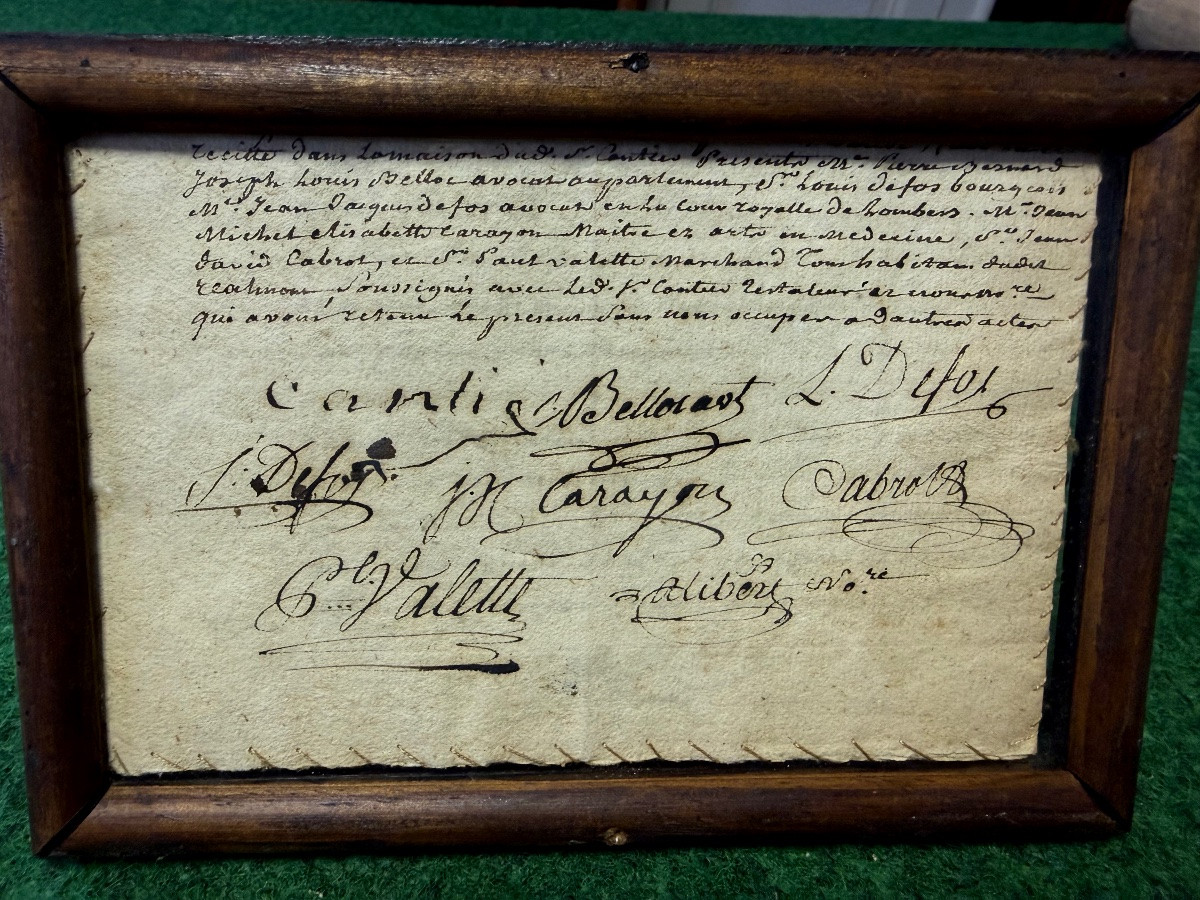 recitté dans la maison dud. Sr. Cantier Presents Me. Pierre Bernard
Joseph Louis Belloc avocat au parlement, Sr. Louis defos bourgeois
Me. Jean Jacques defos avocat en la Cour royalle de Lombers. Mr. Jean
Michel elisabeth Carayon Maitre ez arts en Medecine, Sr. Jean
david Cabrol, et Sr. Paul valette Marchand Tous habitans dudit
realmont Soussignés avec led. Sr. Cantier Testateur et nous nore
qui avons retenu le present Sans nous occuper a dautres actes
Cantier Belloc avt L. Defos
J. Defos J M Carayon Cabrol
Pl. Valette Alibert No.re